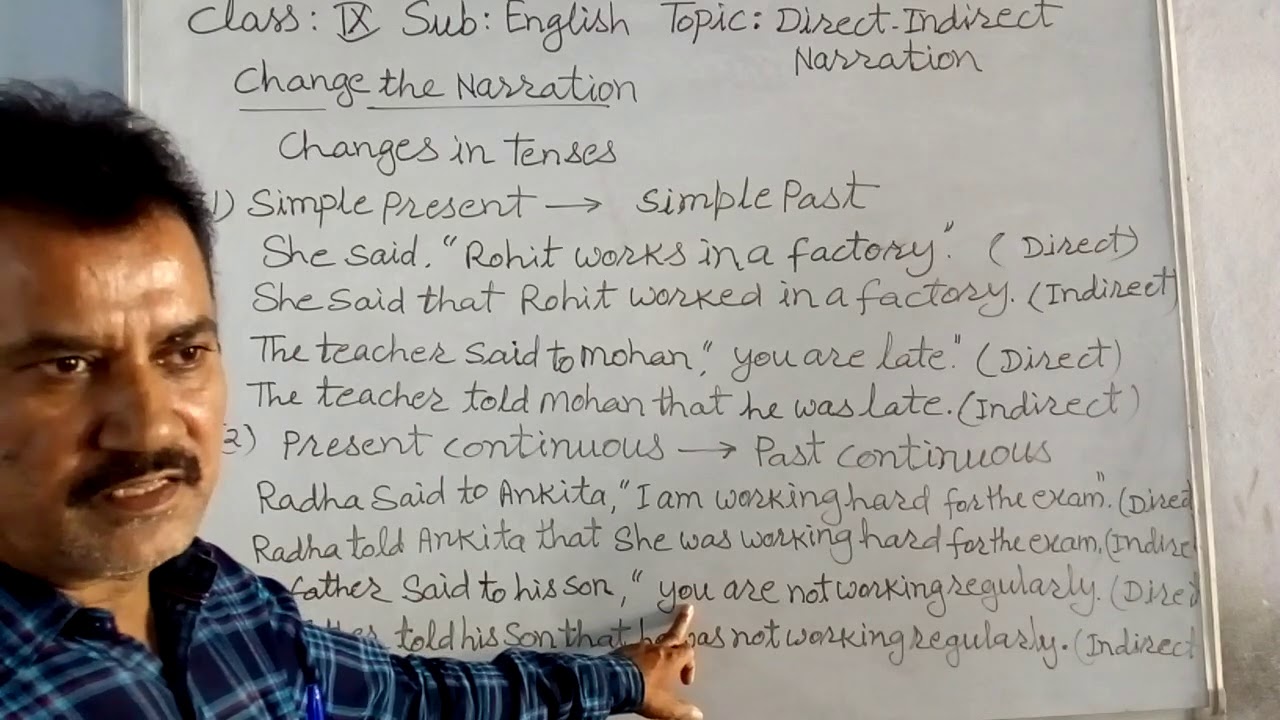 Class: IX Sub: English Topic: Direct-Indirect
Narration
Change the Narration
Changes in tenses
1) Simple Present → Simple Past
She said. "Rohit works in a factory". (Direct)
She said that Rohit worked in a factory. (Indirect)
The teacher said to mohan, "you are late." (Direct)
The teacher told mohan that he was late. (Indirect)
2) Present continuous → Past continuous
Radha said to Ankita, "I am working hard for the exam". (Direct
Radha told Ankita that She was working hard for the exam. (Indirec
father said to his son, "you are not working regularly. (Direct
told his son that he was not working regularly. (Indirect